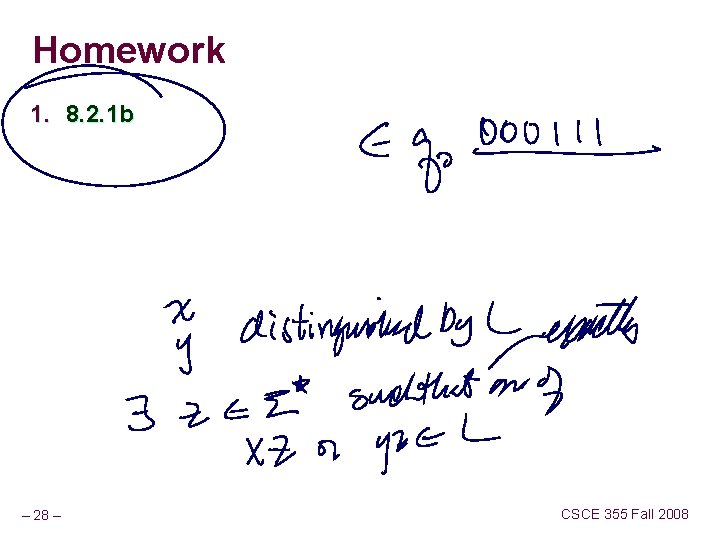 Homework
1. 8.2.1b
∈ q₀ 000111
x distinguished by L exactly
y
∃ z ∈ Σ* such that one of
xz or yz ∈ L
– 28 –
CSCE 355 Fall 2008